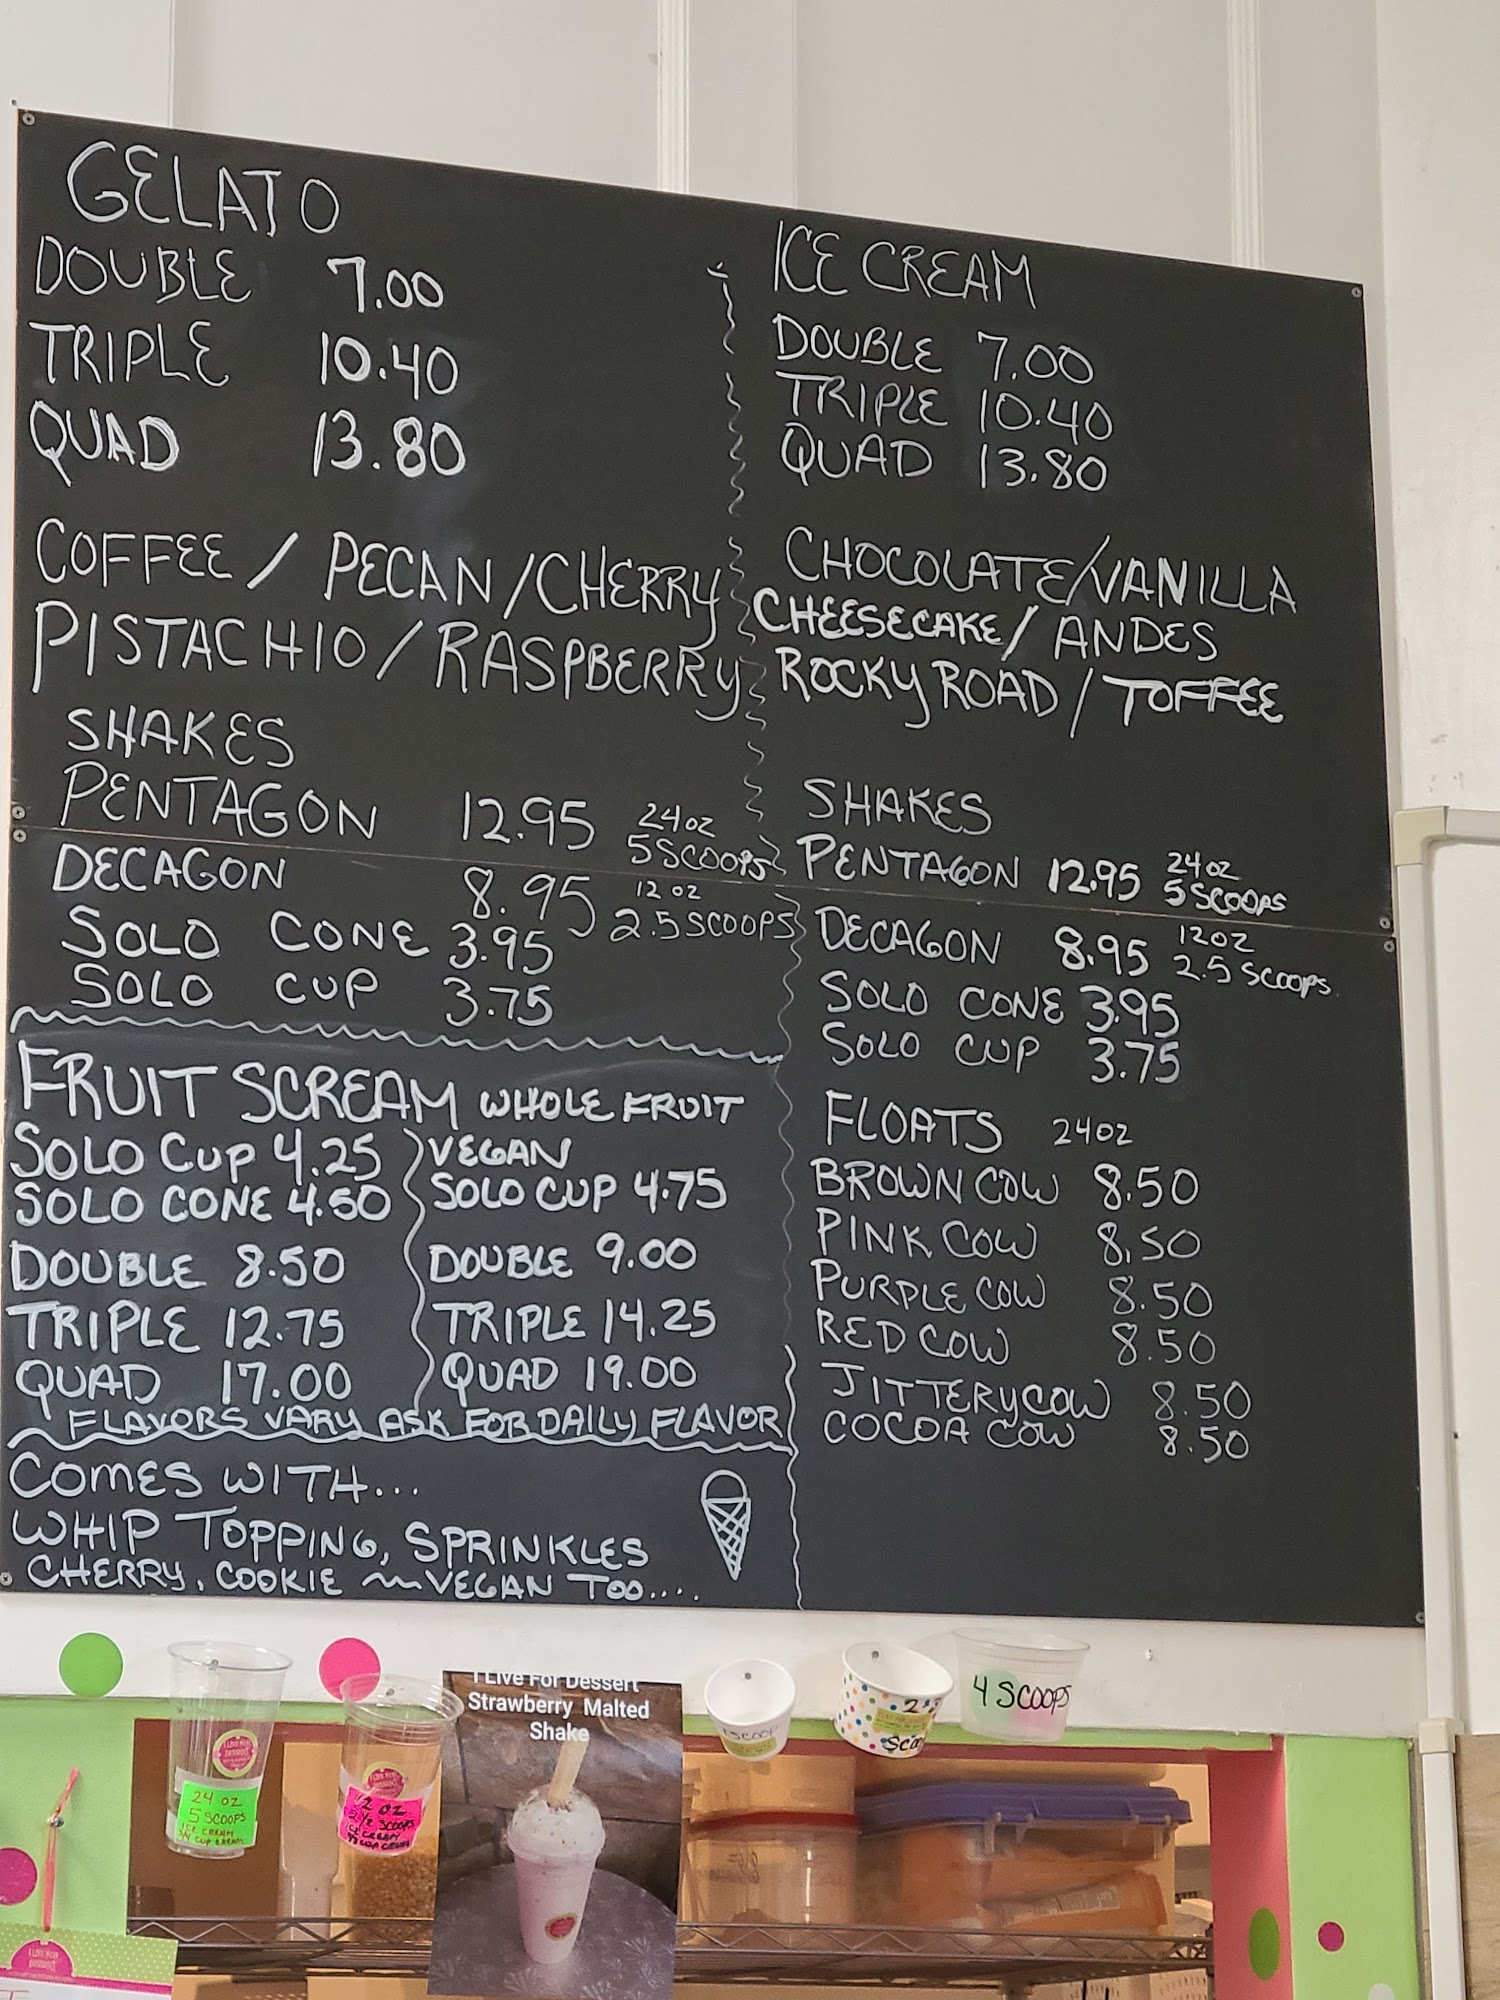 GELATO
DOUBLE 7.00
TRIPLE 10.40
QUAD 13.80
COFFEE / PECAN / CHERRY
PISTACHIO / RASPBERRY
SHAKES
PENTAGON 12.95 24oz 5 SCOOPS
DECAGON 8.95 12 oz 2.5 SCOOPS
SOLO CONE 3.95
SOLO CUP 3.75
FRUIT SCREAM WHOLE FRUIT
SOLO CUP 4.25
SOLO CONE 4.50
DOUBLE 8.50
TRIPLE 12.75
QUAD 17.00
VEGAN
SOLO CUP 4.75
DOUBLE 9.00
TRIPLE 14.25
QUAD 19.00
FLAVORS VARY ASK FOR DAILY FLAVOR
COMES WITH...
WHIP TOPPING, SPRINKLES
CHERRY, COOKIE ~ VEGAN TOO....
ICE CREAM
DOUBLE 7.00
TRIPLE 10.40
QUAD 13.80
CHOCOLATE/VANILLA
CHEESECAKE/ ANDES
ROCKY ROAD / TOFFEE
SHAKES
PENTAGON 12.95 24oz 5 SCOOPS
DECAGON 8.95 12oz 2.5 SCOOPS
SOLO CONE 3.95
SOLO CUP 3.75
FLOATS 24oz
BROWN COW 8.50
PINK COW 8.50
PURPLE COW 8.50
RED COW 8.50
JITTERY COW 8.50
COCOA COW 8.50
24 OZ
5 SCOOPS
ICE CREAM
12 OZ
2 1/2 SCOOPS
ICE CREAM
I Live For Dessert
Strawberry Malted
Shake
1 SCOOP
4 SCOOPS
I LIVE FOR
DESSERT